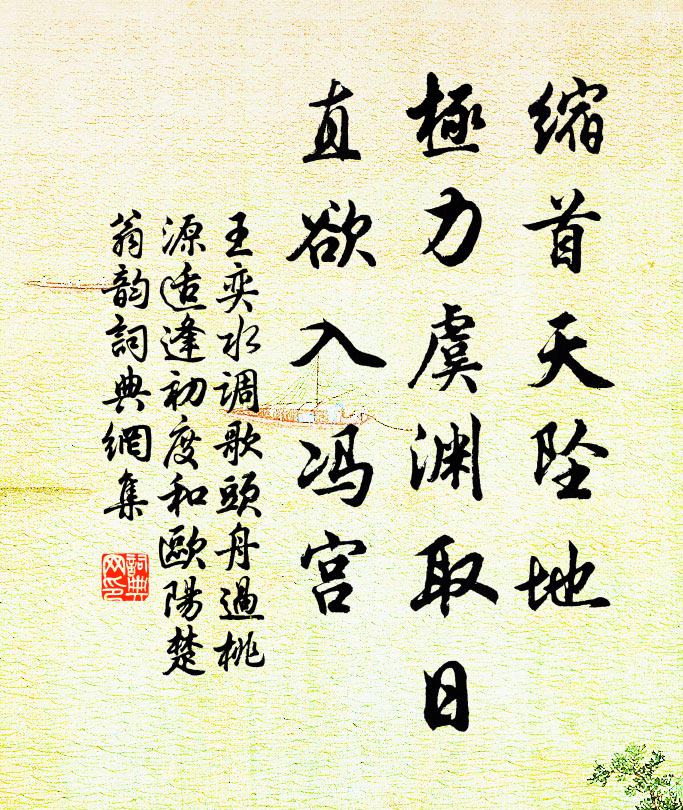 缩首天坠地
極力虞渊取日
直欲入冯宫
王奕水调歌頭舟過桃
源适逢初度和歐陽楚
翁韵詞典網集
詞典
网印